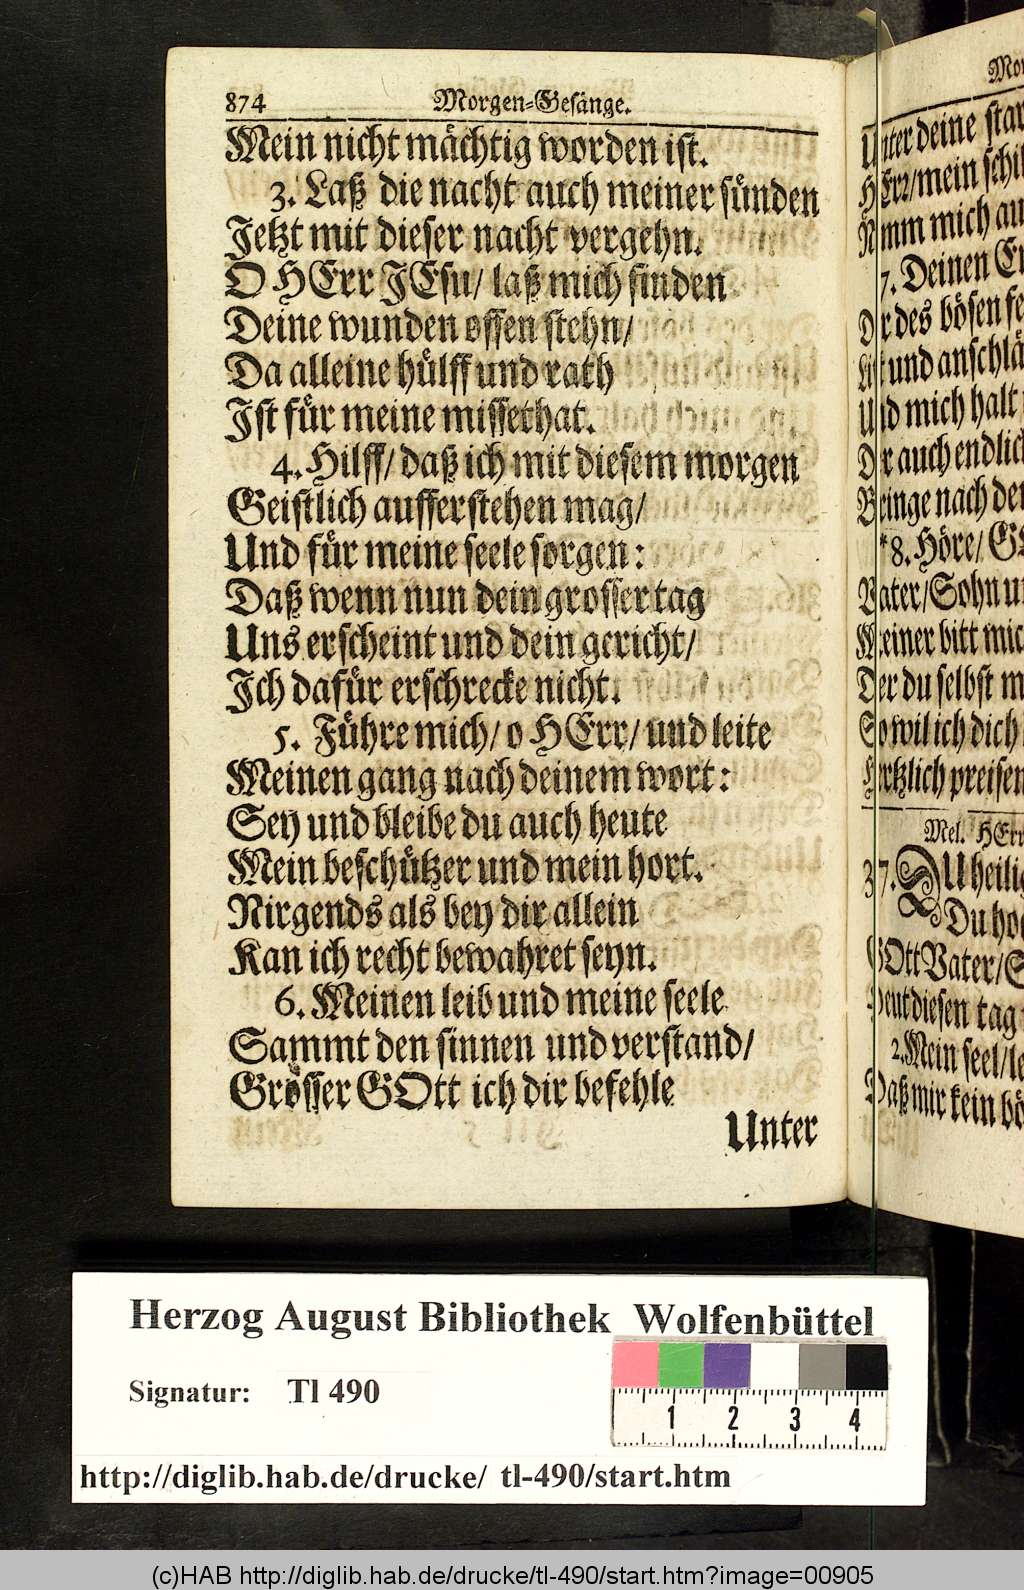 874 Morgen-Gesänge.
Mein nicht mächtig worden ist.
3. Laß die nacht auch meiner sünden
Jetzt mit dieser nacht vergehn.
O HErr JEsu/ laß mich finden
Deine wunden offen stehn/
Da alleine hülff und rath
Ist für meine missethat.
4. Hilff/ daß ich mit diesem morgen
Geistlich aufferstehen mag/
Und für meine seele sorgen:
Daß wenn nun dein grosser tag
Uns erscheint und dein gericht/
Ich dafür erschrecke nicht.
5. Führe mich/ o HErr/ und leite
Meinen gang nach deinem wort:
Sey und bleibe du auch heute
Mein beschützer und mein hort.
Nirgends als bey dir allein
Kan ich recht bewahret seyn.
6. Meinen leib und meine seele
Sammt den sinnen und verstand/
Grösser GOtt ich dir befehle
Unter
Unter deine
HErr/ mein
Nimm mich
7. Deinen
Dir des bösen
List und
Und mich halt
Der auch
Bringe nach
*8. Höre/
Vater/ Sohn
Meiner bitt
Der du selbst
So wil ich dich
Hertzlich preisen
Mel. HErr
37. DU
Du
GOtt Vater/
Heut diesen tag
2. Mein seel/
Daß mir kein
Herzog August Bibliothek Wolfenbüttel
Signatur: Tl 490
1 2 3 4
http://diglib.hab.de/drucke/ tl-490/start.htm
(c)HAB http://diglib.hab.de/drucke/tl-490/start.htm?image=00905